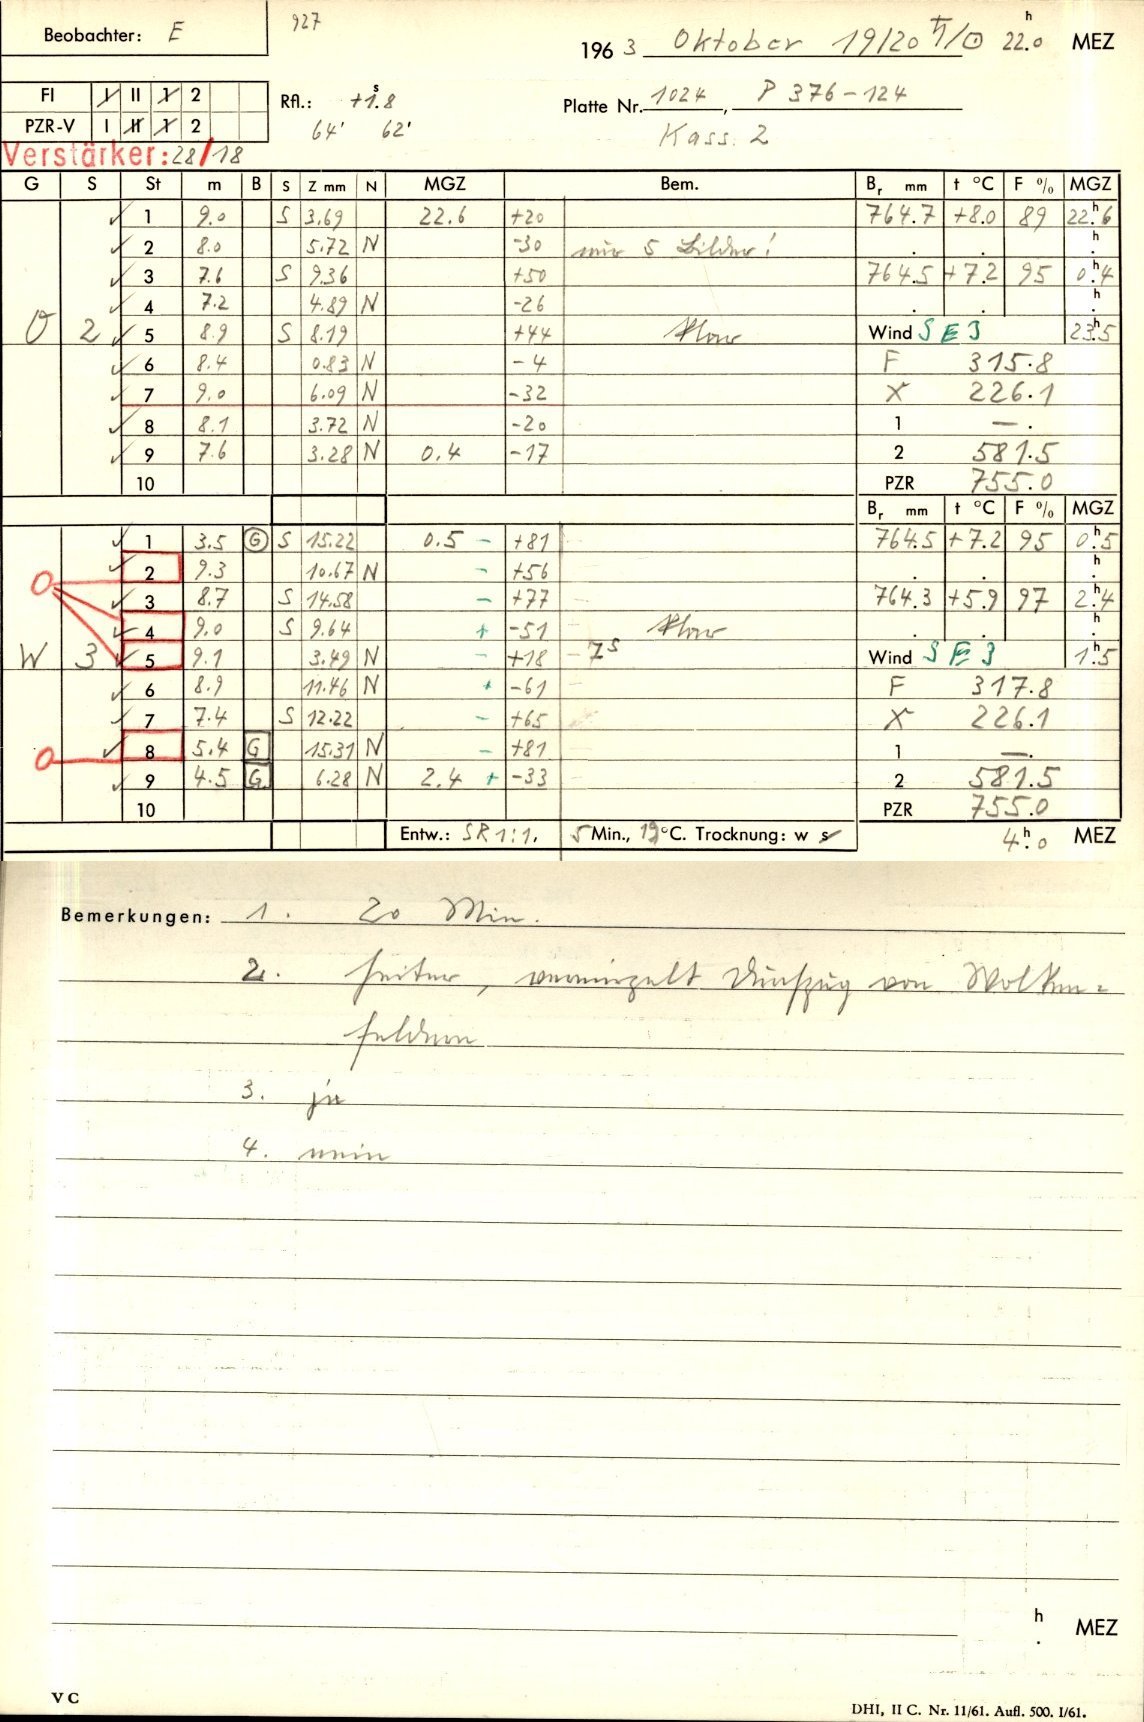 Beobachter: E
927
1963 Oktober 19/20 ♄/☉ 22.0 h MEZ
FI I II 1 2
PZR-V I II 1 2
Rfl.: +1.8 s
64' 62'
Platte Nr. 1024, P 376-124
Kass. 2
Verstärker: 28/18
G S St m B S Z mm N MGZ Bem. Br mm t °C F % MGZ
✓ 1 9.0 S 3.69 22.6 +20 764.7 +8.0 89 22.6 h
✓ 2 8.0 5.72 N -30 nur 5 Bilder! . . h .
✓ 3 7.6 S 9.36 +50 764.5 +7.2 95 0.4 h
✓ 4 7.2 4.89 N -26 . . h .
O 2 ✓ 5 8.9 S 8.19 +44 klar Wind SE 3 23.5 h
✓ 6 8.4 0.83 N -4 F 315.8
✓ 7 9.0 6.09 N -32 X 226.1
✓ 8 8.1 3.72 N -20 1 — .
✓ 9 7.6 3.28 N 0.4 -17 2 581.5
10 PZR 755.0
Br mm t °C F % MGZ
✓ 1 3.5 G S 15.22 0.5 - +81 764.5 +7.2 95 0.5 h
✓ 2 9.3 10.67 N - +56 . . h .
✓ 3 8.7 S 14.58 - +77 764.3 +5.9 97 2.4 h
✓ 4 9.0 S 9.64 + -51 klar . . h .
W 3 ✓ 5 9.1 3.49 N - +18 - 7 s Wind SE 3 1.5 h
✓ 6 8.9 11.46 N + -61 F 317.8
✓ 7 7.4 S 12.22 - +65 X 226.1
✓ 8 5.4 G 15.31 N - +81 1 — .
✓ 9 4.5 G 6.28 N 2.4 + -33 2 581.5
10 PZR 755.0
Entw.: SR 1:1, 5 Min., 19 °C. Trocknung: w s 4.0 h MEZ
Bemerkungen: 1. 20 Min.
2. heiter, vereinzelt Durchzug von Wolken=
feldern
3. ja
4. nein
h
. MEZ
V C
DHI, II C. Nr. 11/61. Aufl. 500. I/61.